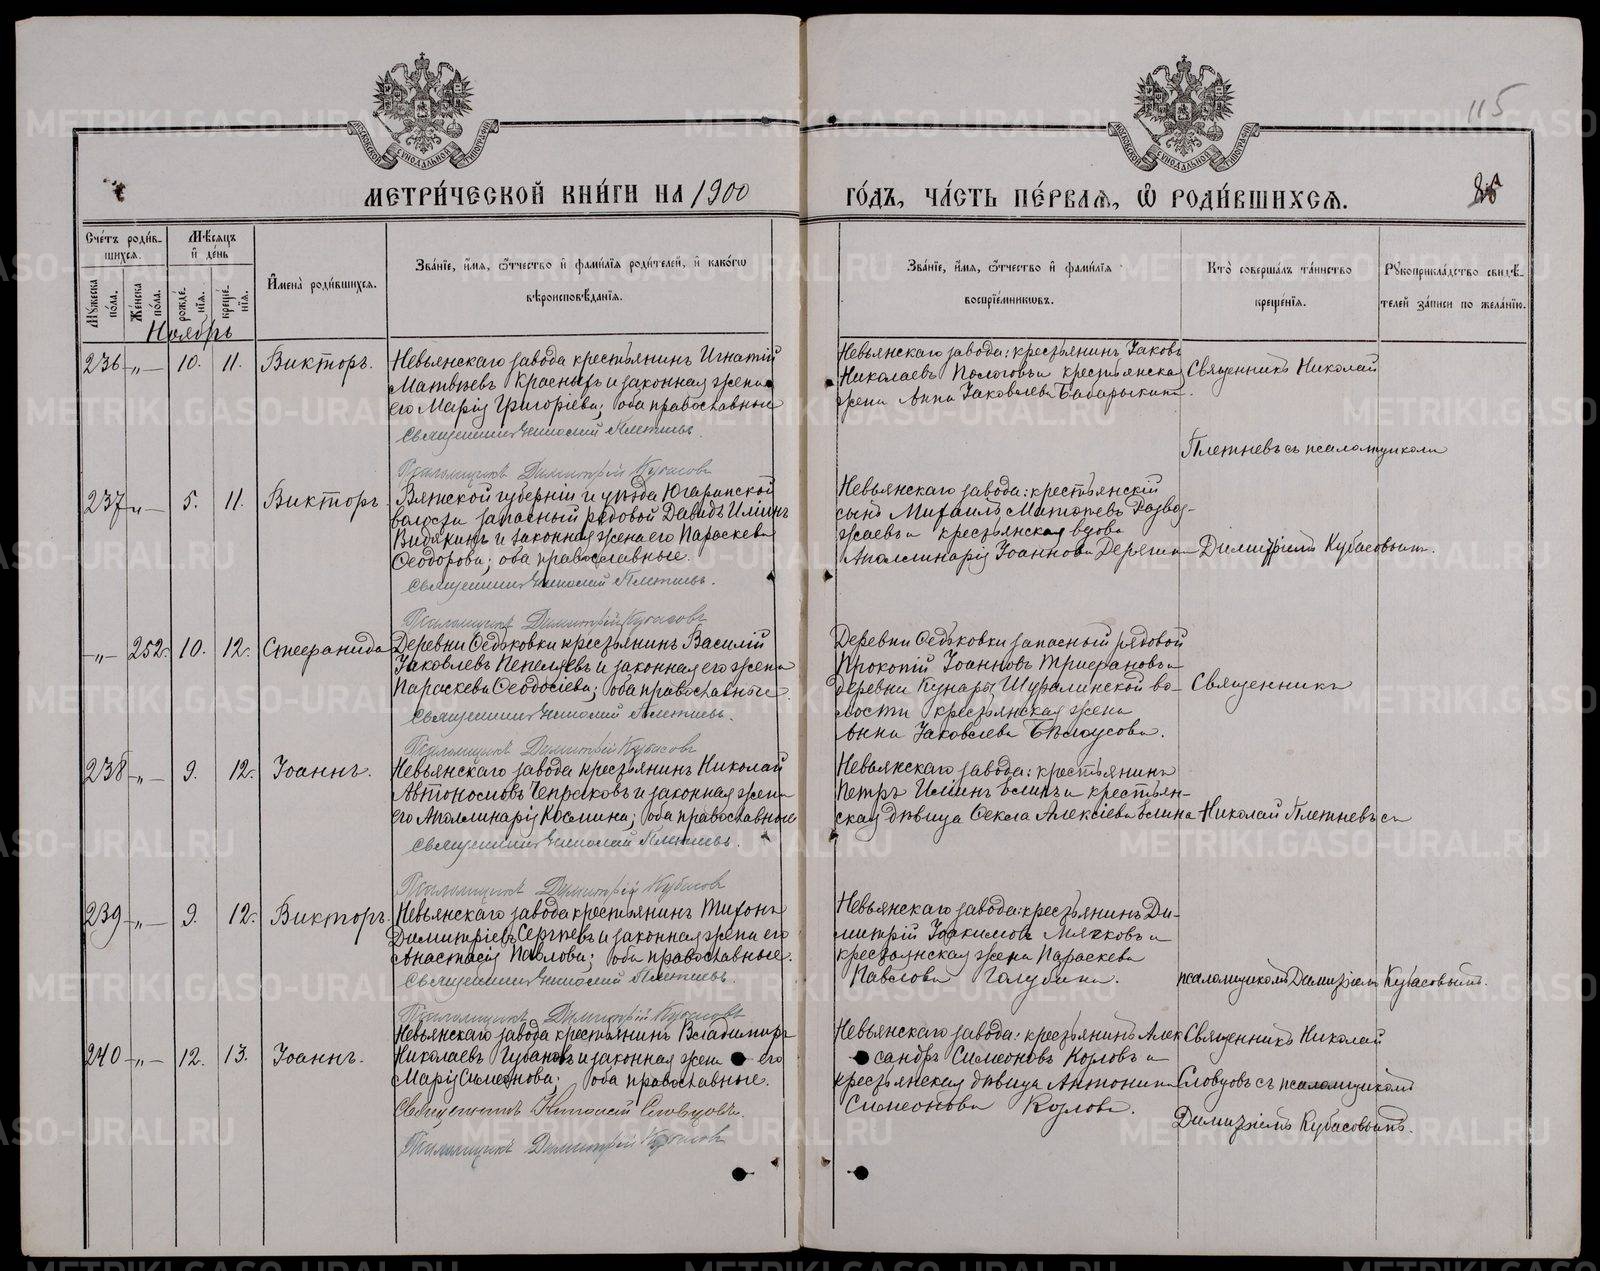 115
МЕТРИ́ЧЕСКОЙ КНИ́ГИ НА 1900
ГО́ДЪ, ЧА́СТЬ ПЕ́РВАЯ, Ѽ РОДИ́ВШИХСЯ.
Сче́тъ роди́в-
шихся.
Мѣ́сяцъ
и҆ де́нь
Мꙋжеска
пола.
Же́нска
пола.
рожде́-
нїя.
креще́-
нїя.
И҆мена̀ роди́вшихся.
Зва́нїе, и҆́мя, ѻ҆́тчество и҆ фами́лїя роди́телей, и҆ како́гѡ
вѣроисповѣ́данїя.
Зва́нїе, и҆́мя, ѻ҆́тчество и҆ фами́лїя
воспрїе́мниковъ.
Кто̀ соверша́лъ та́инство
креще́нїя.
Рꙋкоприкла́дство свидѣ́-
телей за́писи по жела́нїю.
Ноябрь
236 -„- 10. 11. Викторъ.
Невьянскаго завода крестьянинъ Игнатій
Матвѣевъ Красныхъ и законная жена
его Марія Григоріева; оба православные
Священникъ Николай Плетневъ.
Псаломщикъ Димитрій Кубасовъ
Невьянскаго завода: крестьянинъ Іаковъ
Николаевъ Пологовъ и крестьянская
жена Анна Іаковлева Бабарыкина.
Священникъ Николай
Плетневъ съ псаломщикомъ
237 -„- 5. 11. Викторъ
Вятской губерніи и уѣзда Югаринской
волости запасный рядовой Давидъ Иліинъ
Видякинъ и законная жена его Параскева
Ѳеодорова; оба православные.
Священникъ Николай Плетневъ.
Псаломщикъ Димитрій Кубасовъ
Невьянскаго завода: крестьянскій
сынъ Михаилъ Матѳеевъ
и крестьянская вдова
Аполлинарія Іоаннова
Димитріемъ Кубасовымъ.
-„- 252. 10. 12. Стефанида
Деревни Ѳедьковки крестьянинъ Василій
Іаковлевъ Пепеляевъ и законная его жена
Параскева Ѳеодосіева; оба православные.
Священникъ Николай Плетневъ.
Псаломщикъ Димитрій Кубасовъ
Деревни Ѳедьковки запасный рядовой
Прокопій Іоанновъ Трифановъ и
деревни Кунары Шуралинской во-
лости крестьянская жена
Анна Іаковлева Бѣлоусова.
Священникъ
238 -„- 9. 12. Іоаннъ.
Невьянскаго завода крестьянинъ Николай
Автономовъ Чепраковъ и законная жена
его Аполлинарія Косьмина; оба православные
Священникъ Николай Плетневъ.
Псаломщикъ Димитрій Кубасовъ
Невьянскаго завода: крестьянинъ
Петръ Иліинъ и крестьян-
ская дѣвица Ѳекла Алексіева
Николай Плетневъ съ
239 -„- 9. 12. Викторъ.
Невьянскаго завода крестьянинъ Тихонъ
Димитріевъ Сергѣевъ и законная жена его
Анастасія Павлова; оба православные.
Священникъ Николай Плетневъ.
Псаломщикъ Димитрій Кубасовъ
Невьянскаго завода: крестьянинъ Ди-
митрій Іоакимовъ Мягковъ и
крестьянская жена Параскева
Павлова Голубина.
псаломщикомъ Димитріемъ Кубасовымъ.
240 -„- 12. 13. Іоаннъ.
Невьянскаго завода крестьянинъ Владиміръ
Николаевъ Губановъ и законная жена его
Марія Симеонова; оба православные.
Священникъ Николай Словцовъ.
Псаломщикъ Димитрій Кубасовъ
Невьянскаго завода: крестьянинъ Алек
сандръ Симеоновъ Козловъ и
крестьянская дѣвица Антонина
Симеонова Козлова.
Священникъ Николай
Словцовъ съ псаломщикомъ
Димитріемъ Кубасовымъ.
METRIKI.GASO-URAL.RU